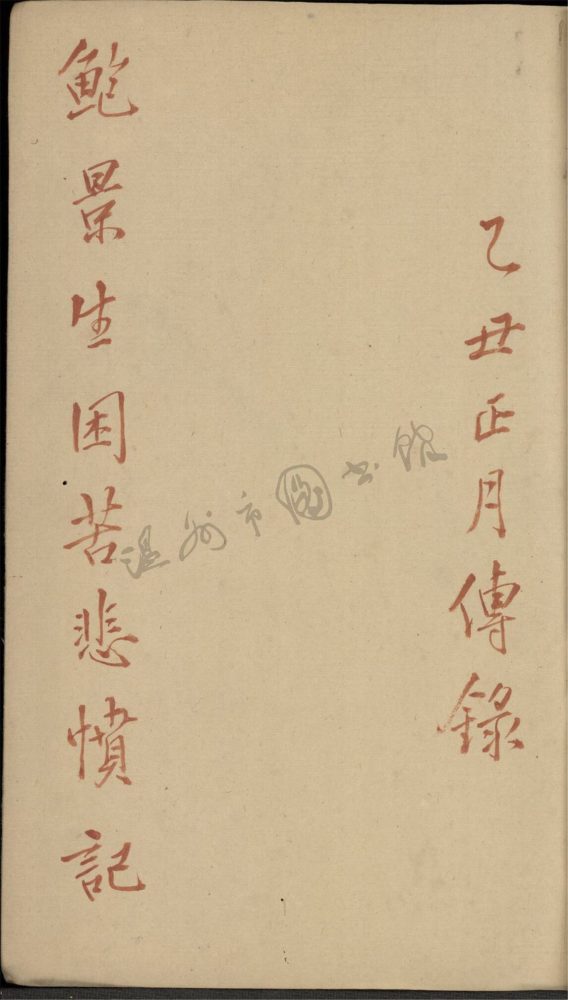 乙丑正月傳錄
鮑景生困苦悲憤記
温州市图书馆